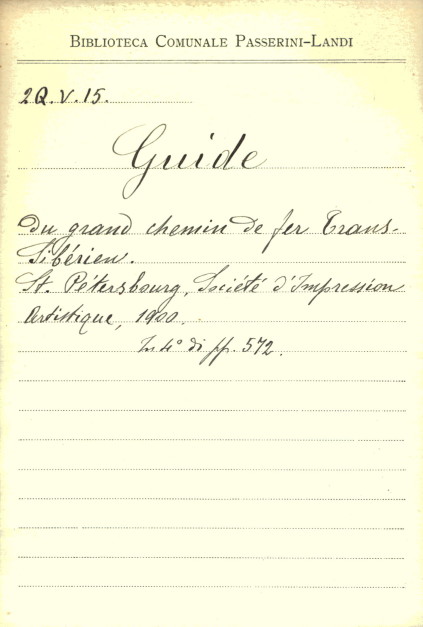 Biblioteca Comunale Passerini-Landi
2Q.V.15.
Guide
Du grand chemin de fer Trans-
Sibérien.
St. Pétersbourg, Société d'Impression
Artistique, 1900.
In 4° di pp. 572.